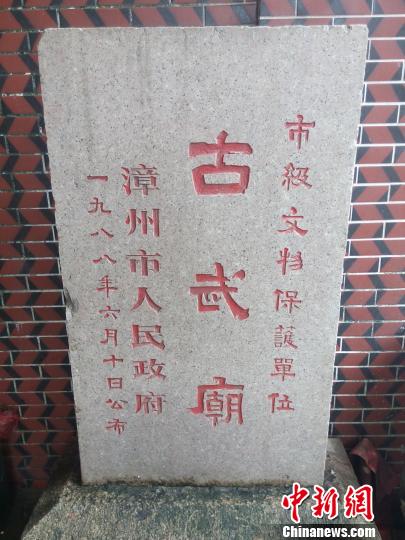 市級文物保護單位
古武廟
漳州市人民政府
一九八八年六月十日公布
中新网
Chinanews.com